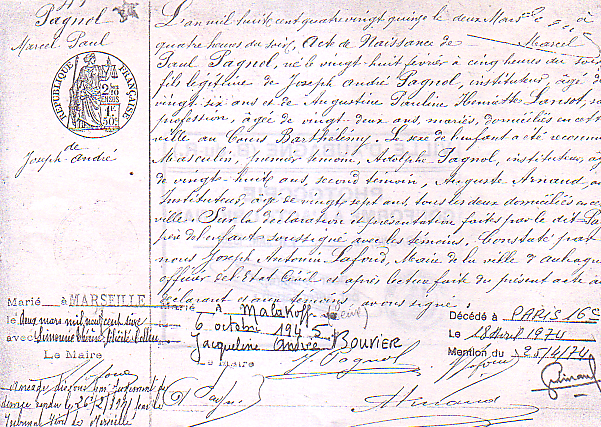 Pagnol
Marcel Paul
RÉPUBLIQUE FRANÇAISE
de
Joseph André
L'an mil huit cent quatre vingt quinze le deux Mars
quatre heures du soir, Acte de Naissance de Marcel
Paul Pagnol, né le vingt-huit février à cinq heures du soir
fils légitime de Joseph André Pagnol, instituteur, âgé de
vingt-six ans et de Augustine Pauline Henriette Lansot, sans
profession, âgée de vingt-deux ans, mariés, domiciliés en cette
ville au Cours Barthélemy. Le sexe de l'enfant a été reconnu
Masculin, premier témoin, Adolphe Pagnol, instituteur, âgé
de vingt-huit ans, second témoin, Auguste Arnaud,
Instituteur, âgé de vingt sept ans, tous les deux domiciliés en cette
ville. Sur la déclaration et présentation faites par le dit
père de l'enfant soussigné avec les témoins, Constaté par
nous Joseph Antonin Lafond, Maire de la ville d'aubagne
officier de l'Etat Civil et après lecture faite du présent acte au
déclarant et aux témoins avons signé.
Marié à MARSEILLE
le deux mars mil neuf cent seize
avec Simonne
Le Maire
Marié à Malakoff (Seine)
6 octobre 1945
Jacqueline Andrée BOUVIER
Le Maire
Décédé à PARIS 16e
Le 18 Avril 1974
Mention du
J. Pagnol
Lafond
Guinard
A Pagnol
Arnaud
Mariage dissous par Jugement de
divorce rendu le
Tribunal Civil de Marseille